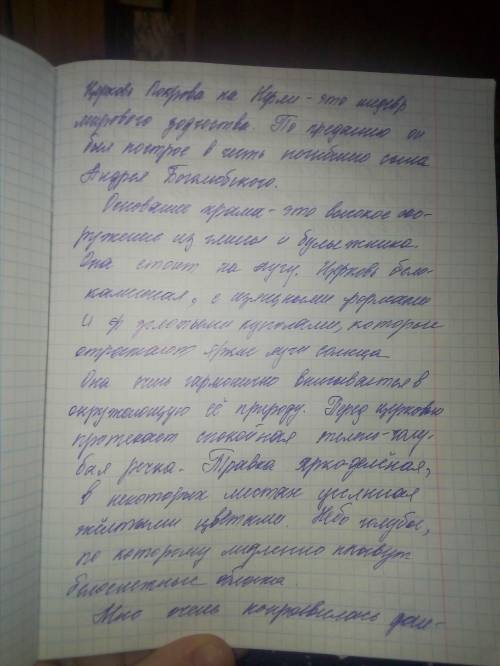 Церковь Покрова на Нерли - это шедевр
мирового зодчества. По преданию он
был построе в честь погибшего сына
Андрея Боголюбского.
Основание храма - это высокое соо-
ружение из глины и булыжника.
Она стоит на лугу. Церковь бело-
каменная, с изящными формами
и золотыми куполами, которые
отражают яркие лучи солнца
Она очень гармонично вписывается в
окружающую её природу. Перед церковью
протекает спокойная темно-голу-
бая речка. Травка ярко-зелёная,
в некоторых местах усеянная
жёлтыми цветками. Небо голубое,
по которому медленно плывут
белоснежные облака
Мне очень понравилась